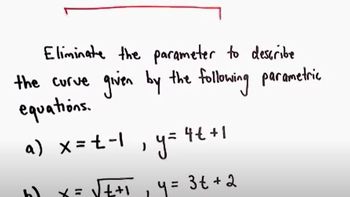 Eliminate the parameter to describe
the curve given by the following parametric
equations.
a) x = t - 1 , y = 4t + 1
b) x = √t+1 , y = 3t + 2